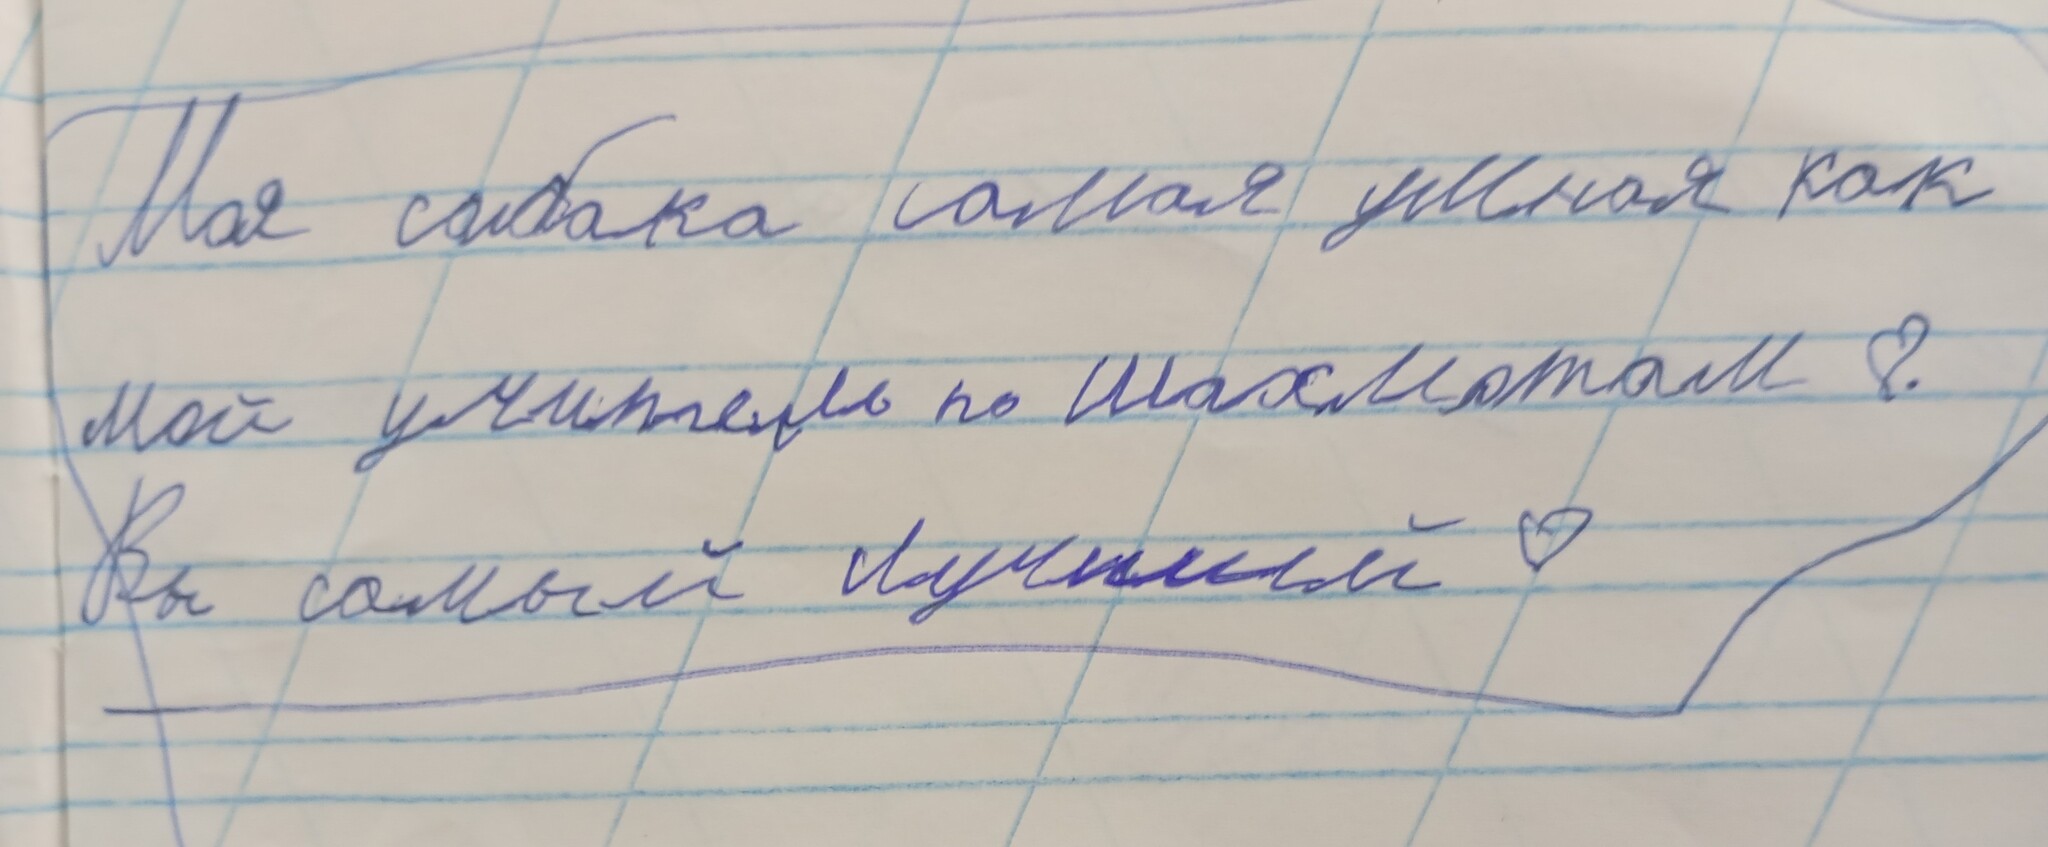 Моя собака самая умная как
мой учитель по Шахматам ♡.
Вы самый Лучший ♡